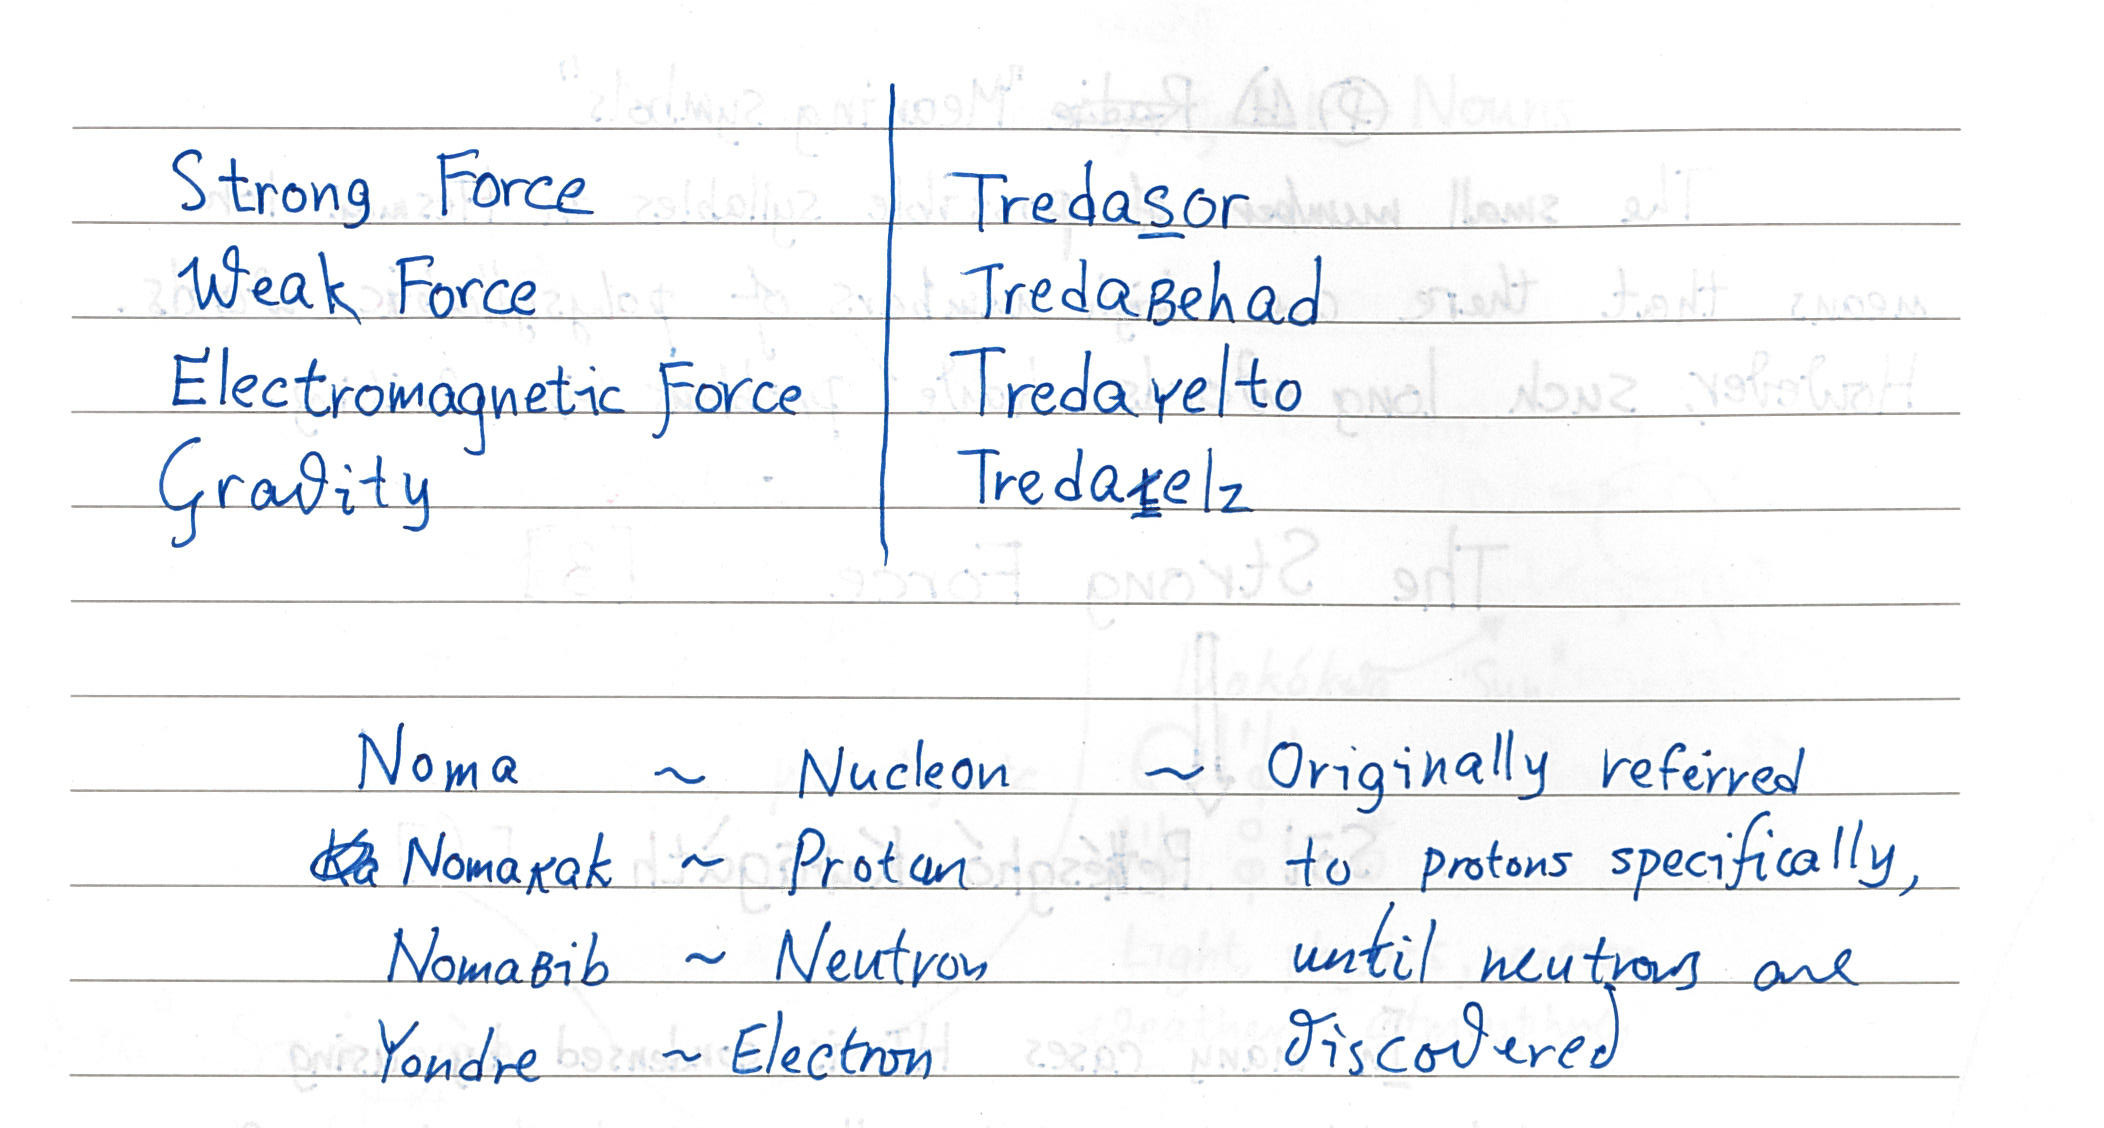 Strong Force Tredasor
Weak Force TredaBehad
Electromagnetic Force Tredayelto
Gravity Tredarelz
Noma ~ Nucleon ~ Originally referred
Nomaʀak ~ Proton to protons specifically,
NomaBib ~ Neutron until neutrons are
Yondre ~ Electron discovered